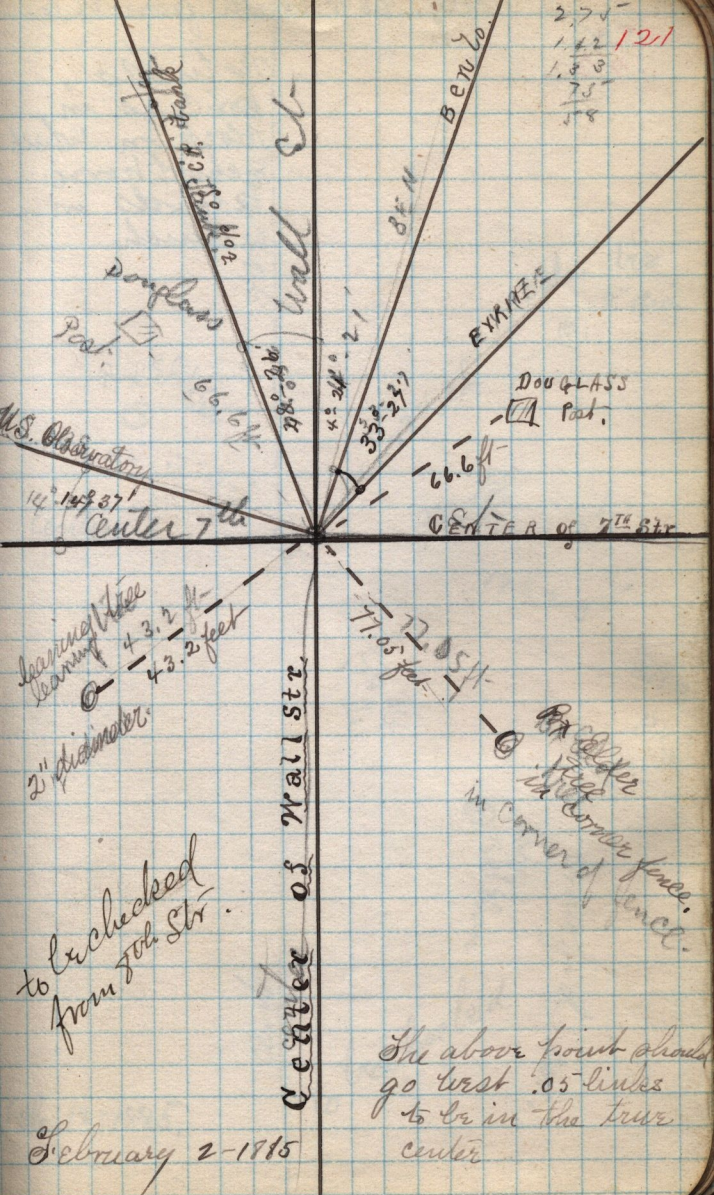 2.75
1.12
1.33
75
58
121
Tank
20°
Wall St
Ben Lo.
BEN.
EYRNZE
Douglass
Post.
66.6 ft
4° 21'
33-27'
DOUGLASS
Post.
66.6 ft
U.S. Observatory
14° 37'
Center 7th
CENTER of 7TH Str
leaning tree
leaning tree
43.2 ft
43.2 feet
2" diameter.
77.05 ft
77.05 feet
Box Elder
tree
in corner fence.
in corner of fence.
Center of Wall Str.
to be checked
from 8th Str.
The above point should
go west .05 links
to be in the true
center
February 2-1885